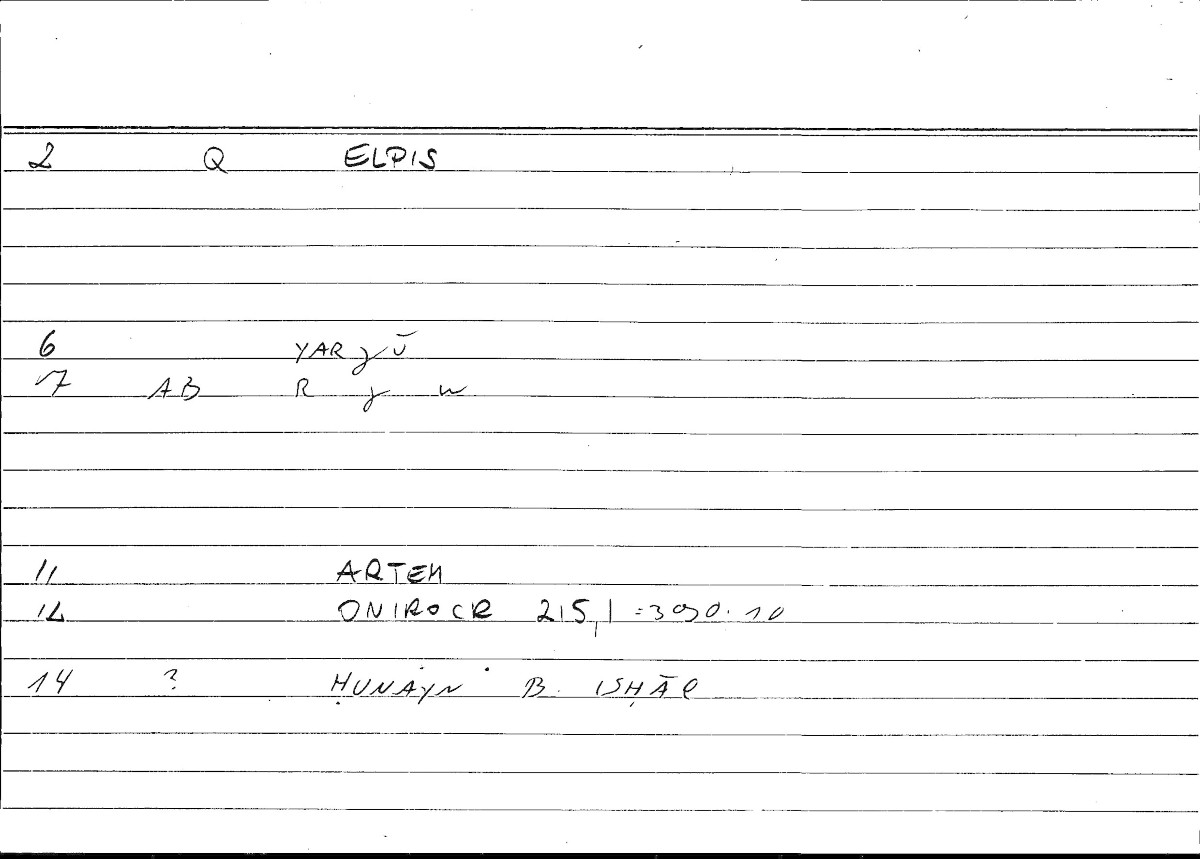 2 Q ELPIS
6 YARJŪ
7 AB R j w
11 ARTEM
12 ONIROCR 215,1 = 390.10
14 ? ḤUNAYN B. ISḤĀQ